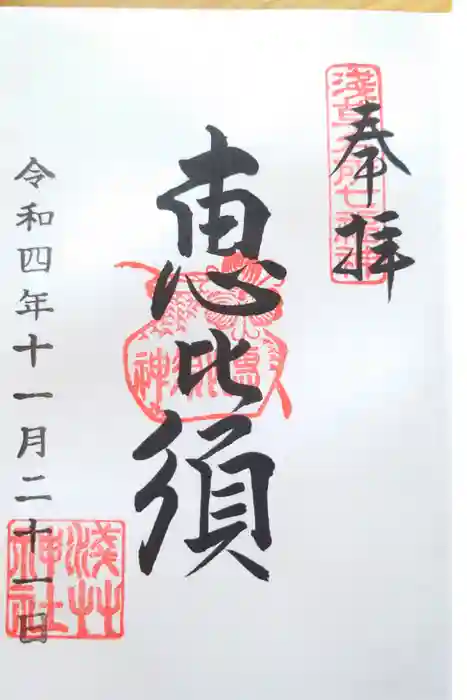 奉拝
淺草名所七福神
恵比須
令和四年十一月二十一日
淺草神社